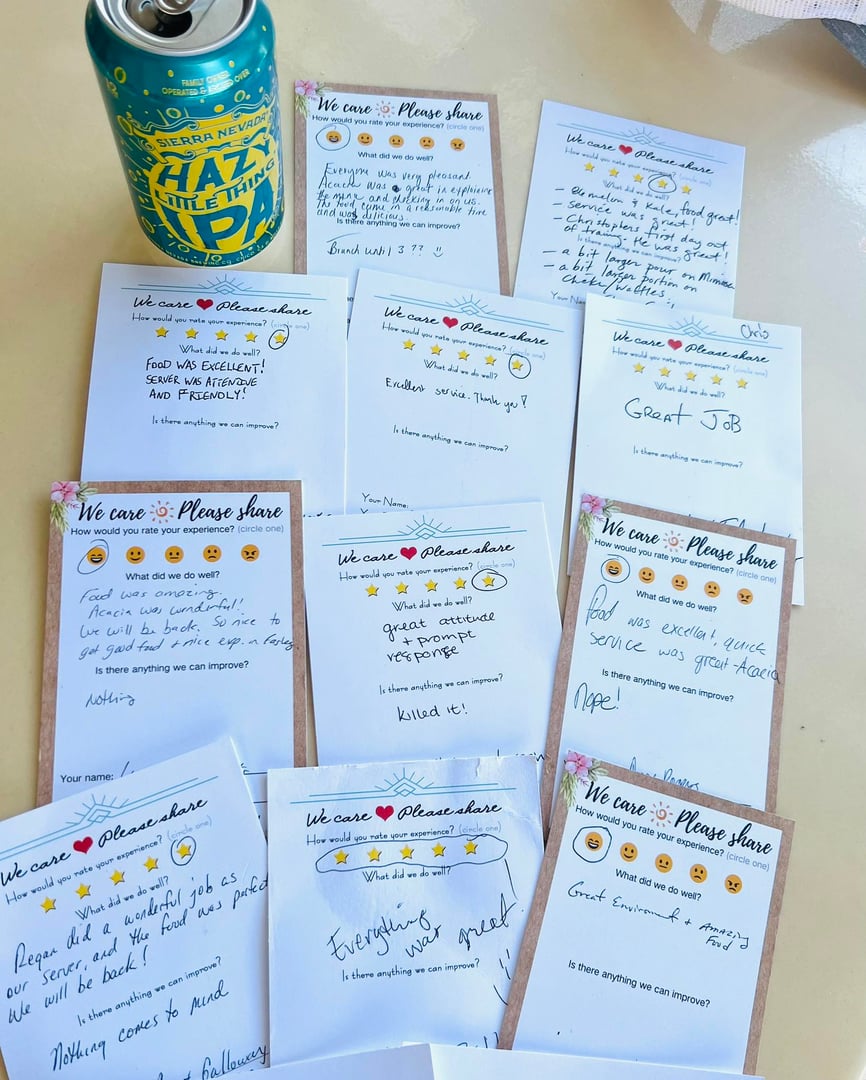 FAMILY OWNED
OPERATED & ARGUED OVER
SIERRA NEVADA
HAZY
LITTLE THING
IPA
We care Please share
How would you rate your experience? (circle one)
What did we do well?
Everyone was very pleasant.
Acacia was great in explaining
the menu and checking in on us.
The food came in a reasonable time
and was delicious.
Is there anything we can improve?
Brunch until 3 ??
We care Please share
How would you rate your experience? (circle one)
What did we do well?
- melon & Kale, food great!
- Service was great!
- Christophers first day out
of training. He was great!
Is there anything we can improve?
- a bit larger pour on Mimosa
- a bit larger portion on
Waffles.
Your Name
We care Please share
How would you rate your experience? (circle one)
What did we do well?
FOOD WAS EXCELLENT!
SERVER WAS ATTENDIVE
AND FRIENDLY!
Is there anything we can improve?
We care Please share
How would you rate your experience? (circle one)
What did we do well?
Excellent service. Thank you!
Is there anything we can improve?
Your Name:
Chris
We care Please share
How would you rate your experience? (circle one)
What did we do well?
GREAT JOB
Is there anything we can improve?
We care Please share
How would you rate your experience? (circle one)
What did we do well?
Food was amazing.
Acacia was wonderful!
We will be back. So nice to
get good food + nice exp. in
Is there anything we can improve?
Nothing
Your name:
We care Please share
How would you rate your experience? (circle one)
What did we do well?
great attitude
+ prompt
response
Is there anything we can improve?
killed it!
We care Please share
How would you rate your experience? (circle one)
What did we do well?
Food was excellent, quick
service was great - Acacia
Is there anything we can improve?
Nope!
We care Please share
How would you rate your experience? (circle one)
What did we do well?
Regan did a wonderful job as
our server, and the food was perfect
We will be back!
Is there anything we can improve?
Nothing comes to mind
Galloway
We care Please share
How would you rate your experience? (circle one)
What did we do well?
Everything
was great!
Is there anything we can improve?
We care Please share
How would you rate your experience? (circle one)
What did we do well?
Great Enviroment + Amazing
Food
Is there anything we can improve?